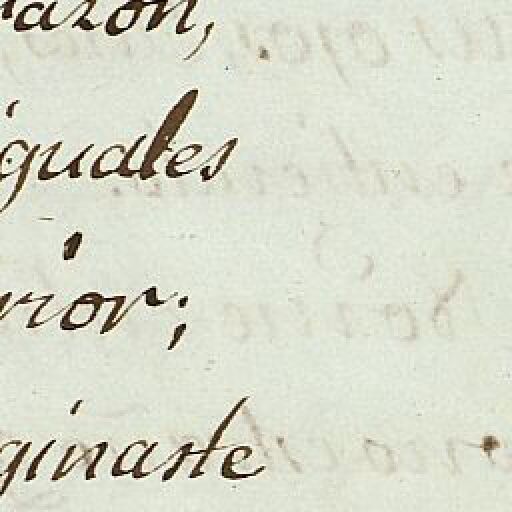 razon,
iguales
rior;
ginaste